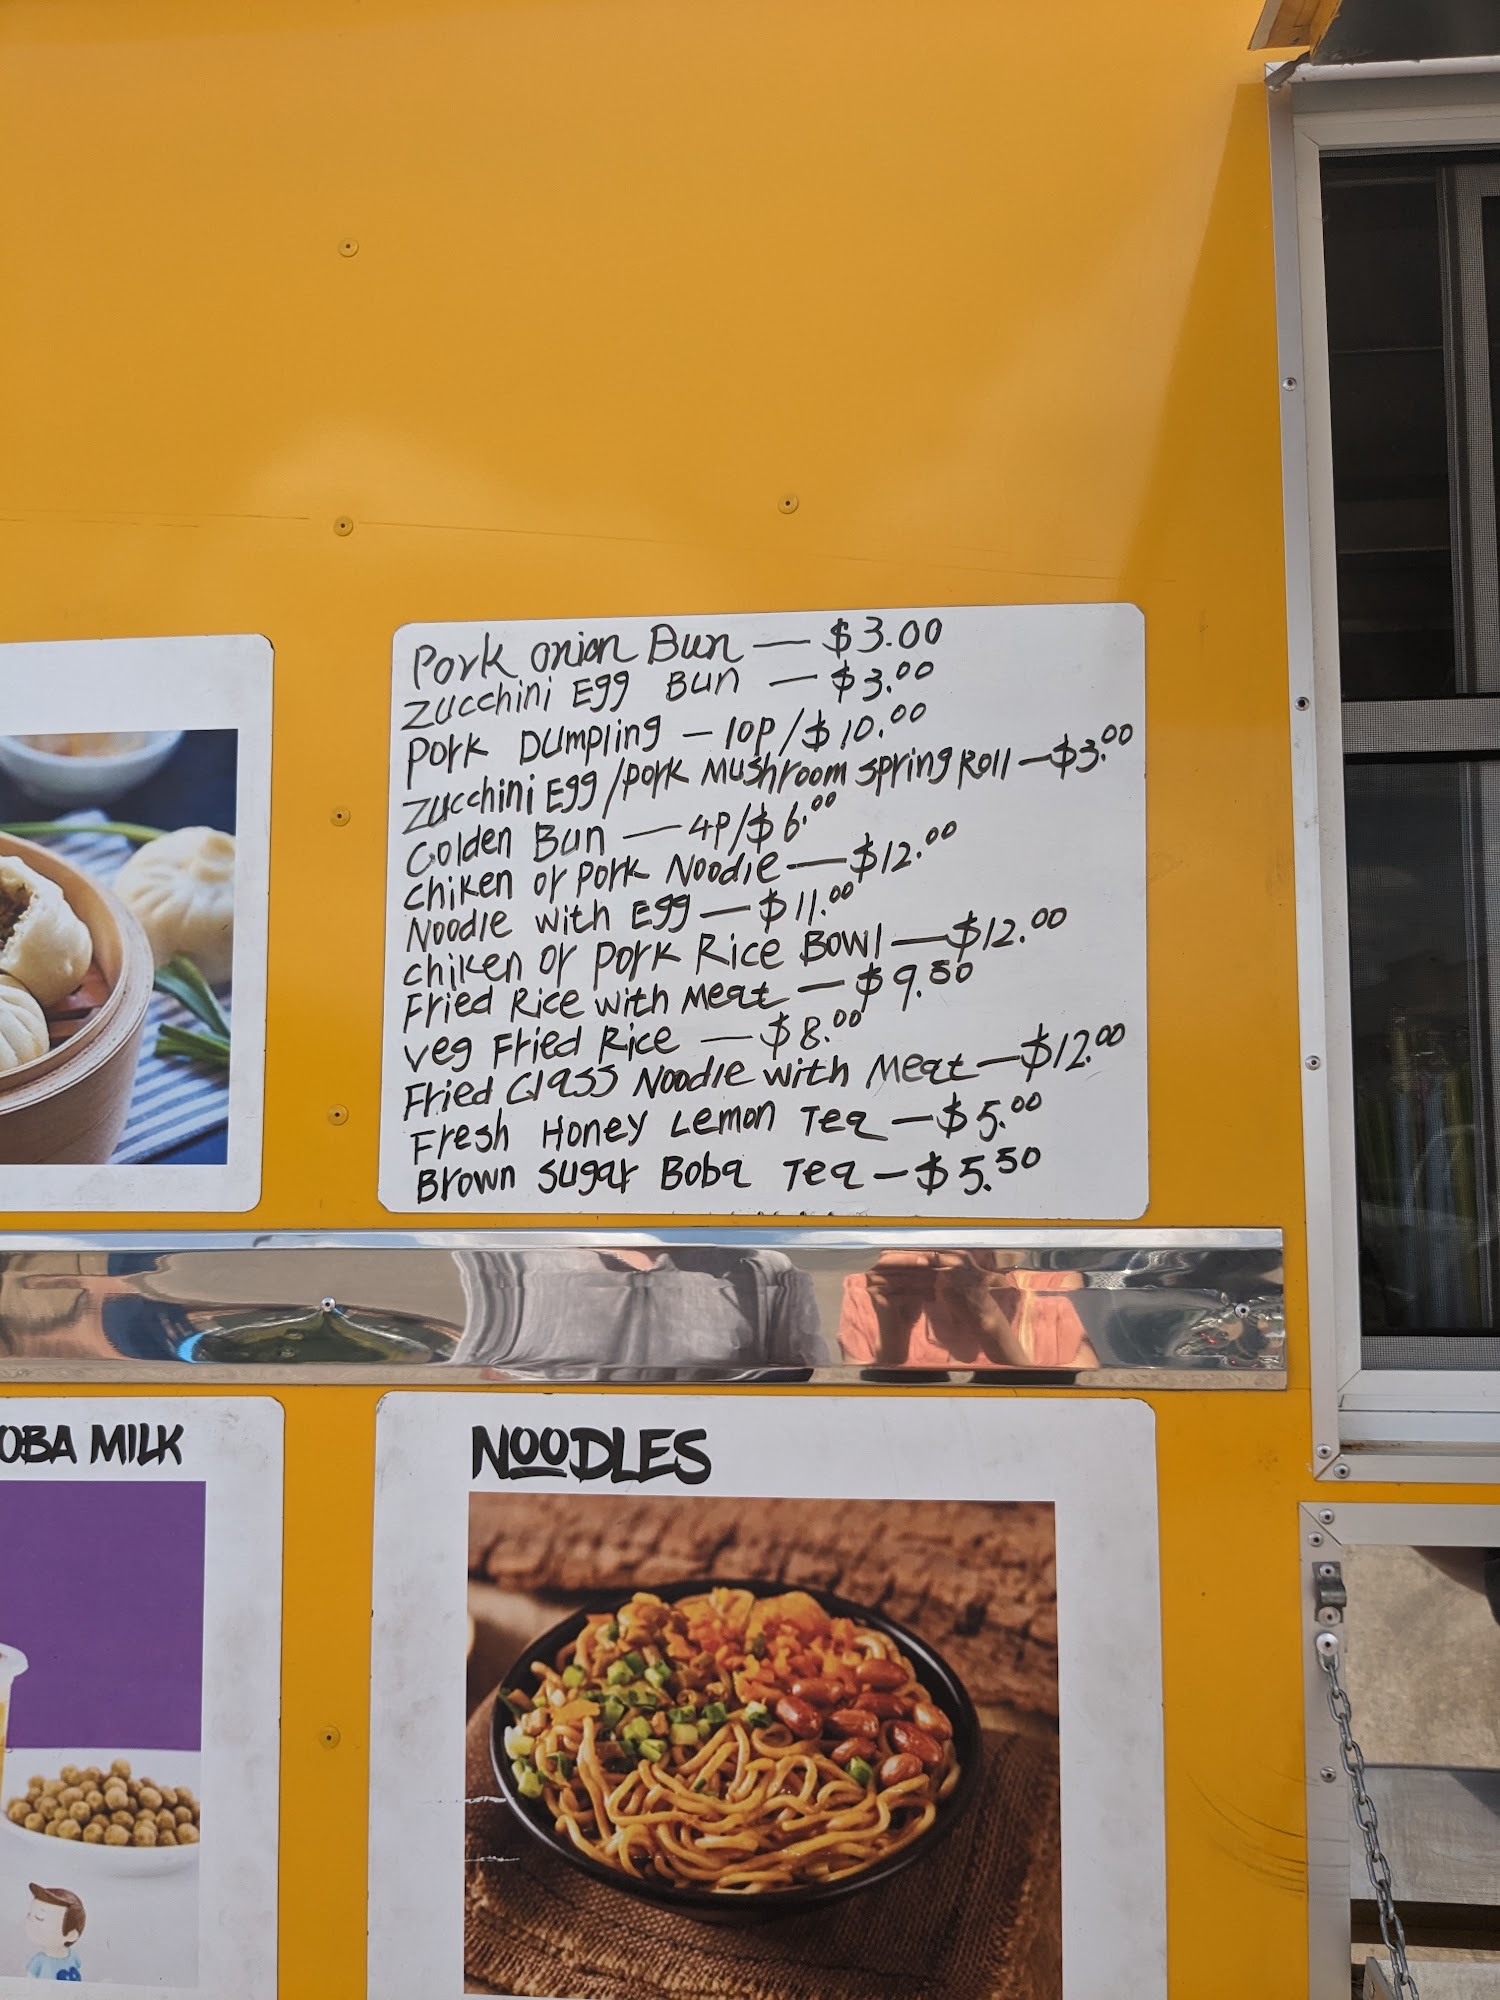 Pork onion Bun — $3.00
Zucchini Egg Bun — $3.00
Pork Dumpling — 10P/$10.00
Zucchini Egg/Pork Mushroom Spring Roll — $3.00
Golden Bun — 4P/$6.00
chiken or Pork Noodle — $12.00
Noodle with Egg — $11.00
chiken or Pork Rice Bowl — $12.00
Fried Rice with Meat — $9.50
Veg Fried Rice — $8.00
Fried Glass Noodle with Meat — $12.00
Fresh Honey Lemon Tea — $5.00
Brown Sugar Boba Tea — $5.50
OBA MILK
NOODLES